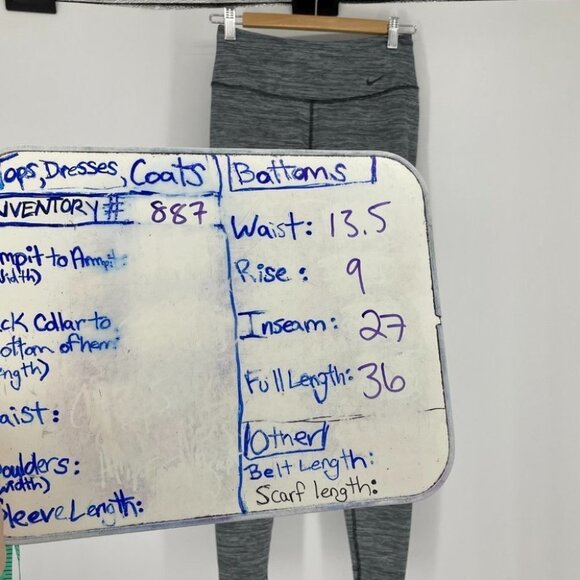 Tops, Dresses, Coats
INVENTORY # 887
Armpit to Armpit:
(width)
Back Collar to
Bottom of hem:
(length)
Waist:
Shoulders:
(width)
Sleeve Length:
Bottoms
Waist: 13.5
Rise: 9
Inseam: 27
Full Length: 36
Other
Belt Length:
Scarf length: